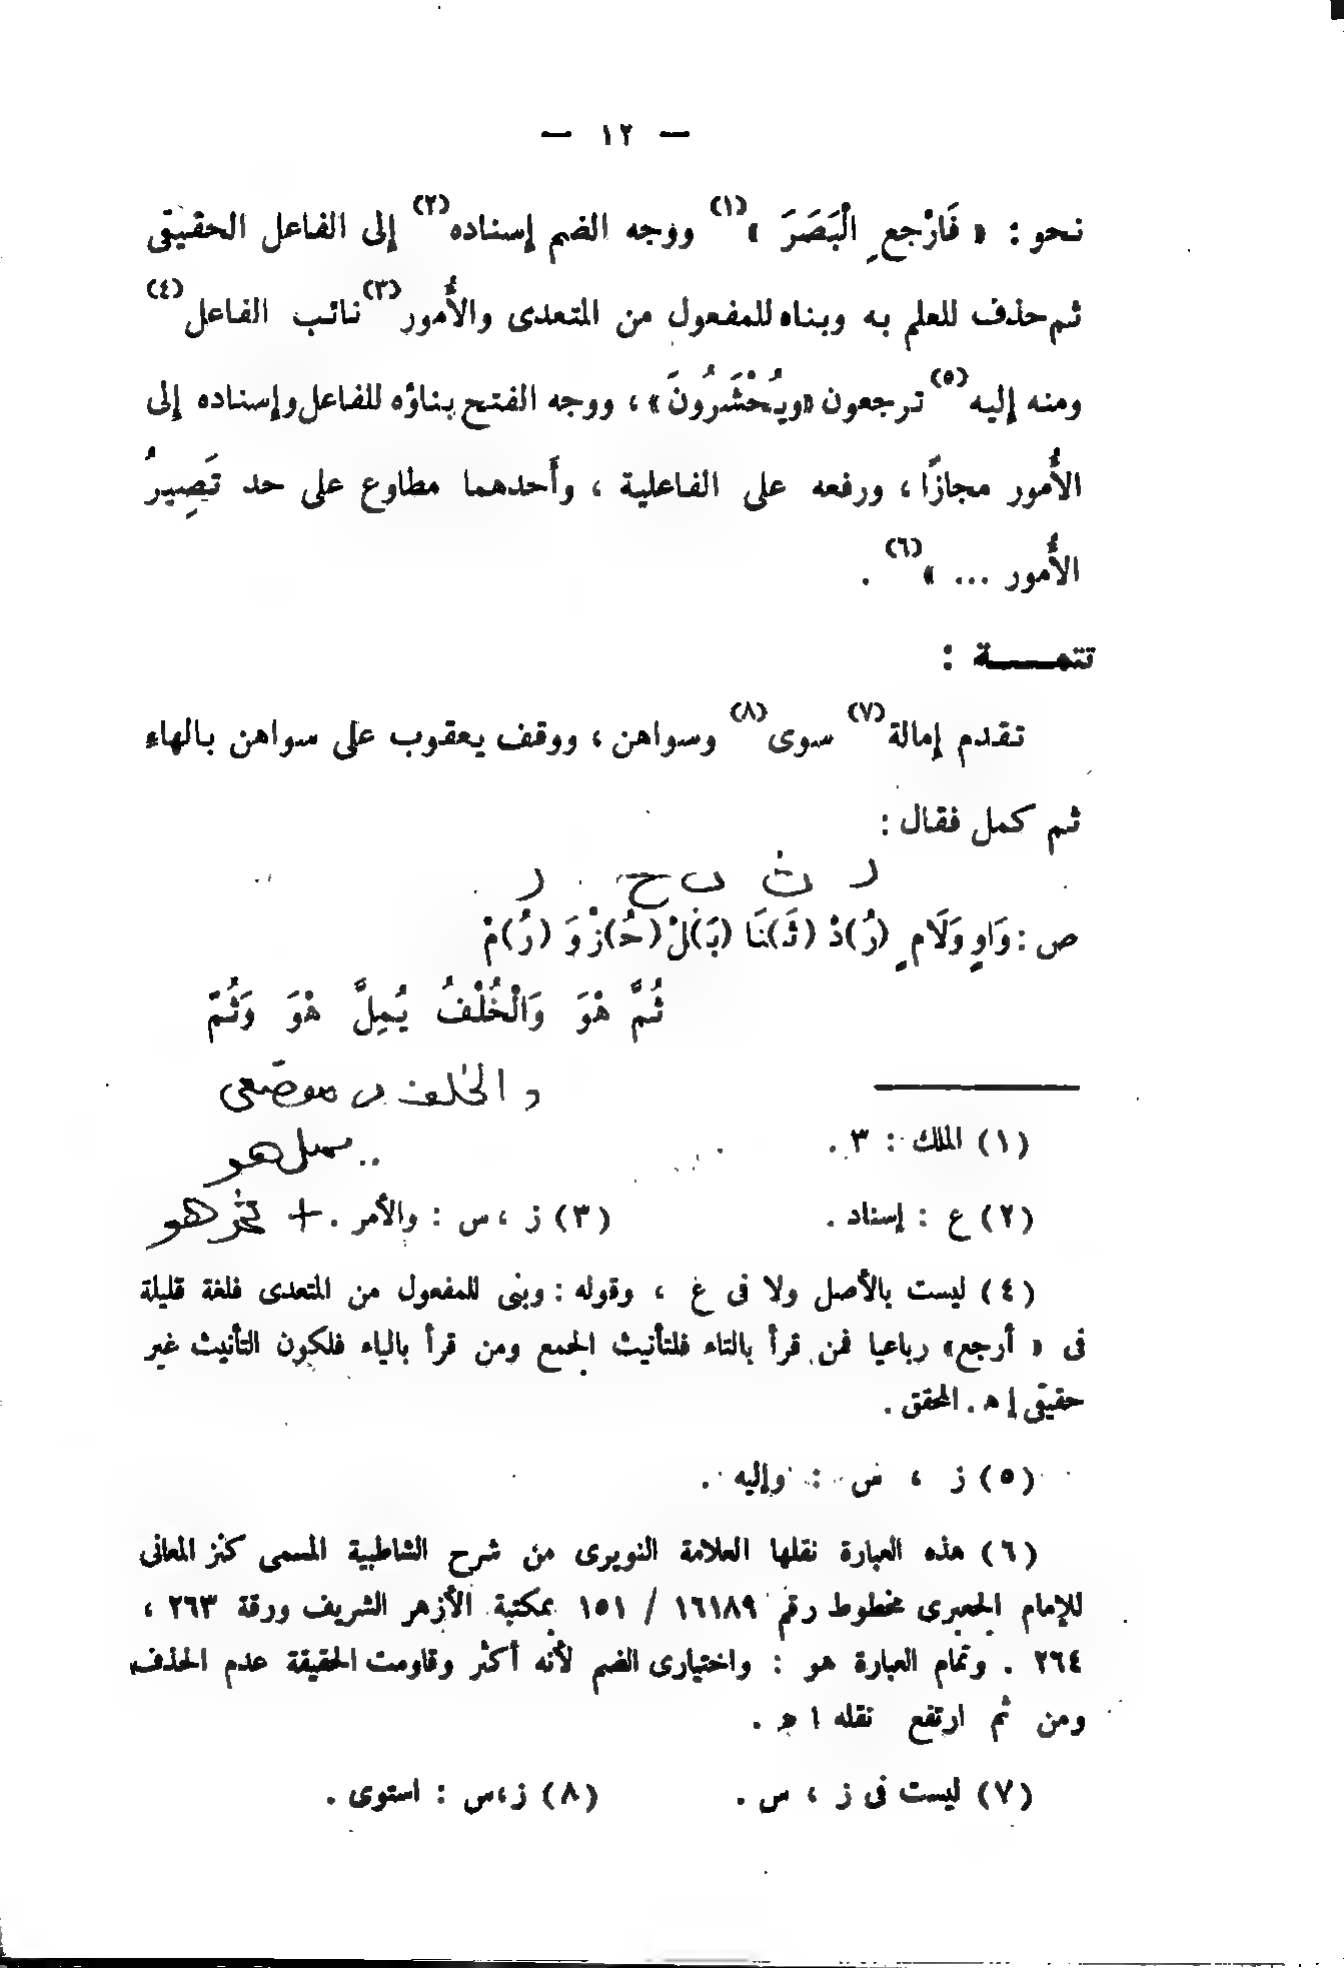 — ١٢ —
نحو : « فَارْجعِ الْبَصَرَ »(١) ووجه الضم إسناده(٢) إلى الفاعل الحقيقى
ثم حذف للعلم به وبناه للمفعول من المتعدى والأُمور(٣) نائب الفاعل(٤)
ومنه إليه(٥) ترجعون «ويُحْشَرُونَ» ، ووجه الفتح بناؤه للفاعل وإسناده إلى
الأُمور مجازًا ، ورفعه على الفاعلية ، وأَحدهما مطاوع على حد تَصِيرُ
الأُمور ... »(٦) .
تتمـــة :
تقدم إمالة(٧) سوى(٨) وسواهن ، ووقف يعقوب على سواهن بالهاء
ثم كمل فقال :
ر ث ب ح ر
ص : وَاوٍ وَلَامٍ (رُ)دْ (ثَ)نَا (بَ)لْ (حُ)زْ وَ (رُ)مْ
ثُمَّ هْوَ وَالْخُلْفُ يُمِلَّ هْوَ وَثُمّ
والخلف ب موضعى
.. يمل هو
(١) الملك : ٣ .
(٢) ع : إسناد . (٣) ز ، س : والأمر . + ثم هو
(٤) ليست بالأصل ولا فى غ ، وقوله : وبنى للمفعول من المتعدى فلغة قليلة
فى « أرجع» رباعيا فمن قرأ بالتاء فلتأنيث الجمع ومن قرأ بالياء فلكون التأنيث غير
حقيقى إ ه . المحقق .
(٥) ز ، س : وإليه .
(٦) هذه العبارة نقلها العلامة النويرى من شرح الشاطبية المسمى كنز المعانى
للإمام الجعبرى مخطوط رقم ١٦١٨٩ / ١٥١ بمكتبة الأزهر الشريف ورقة ٢٦٣ ،
٢٦٤ . وتمام العبارة هو : واختيارى الضم لأنه أكثر وقاومت الحقيقة عدم الحذف
ومن ثم ارتفع نقله ا ه .
(٧) ليست فى ز ، س . (٨) ز،س : استوى .